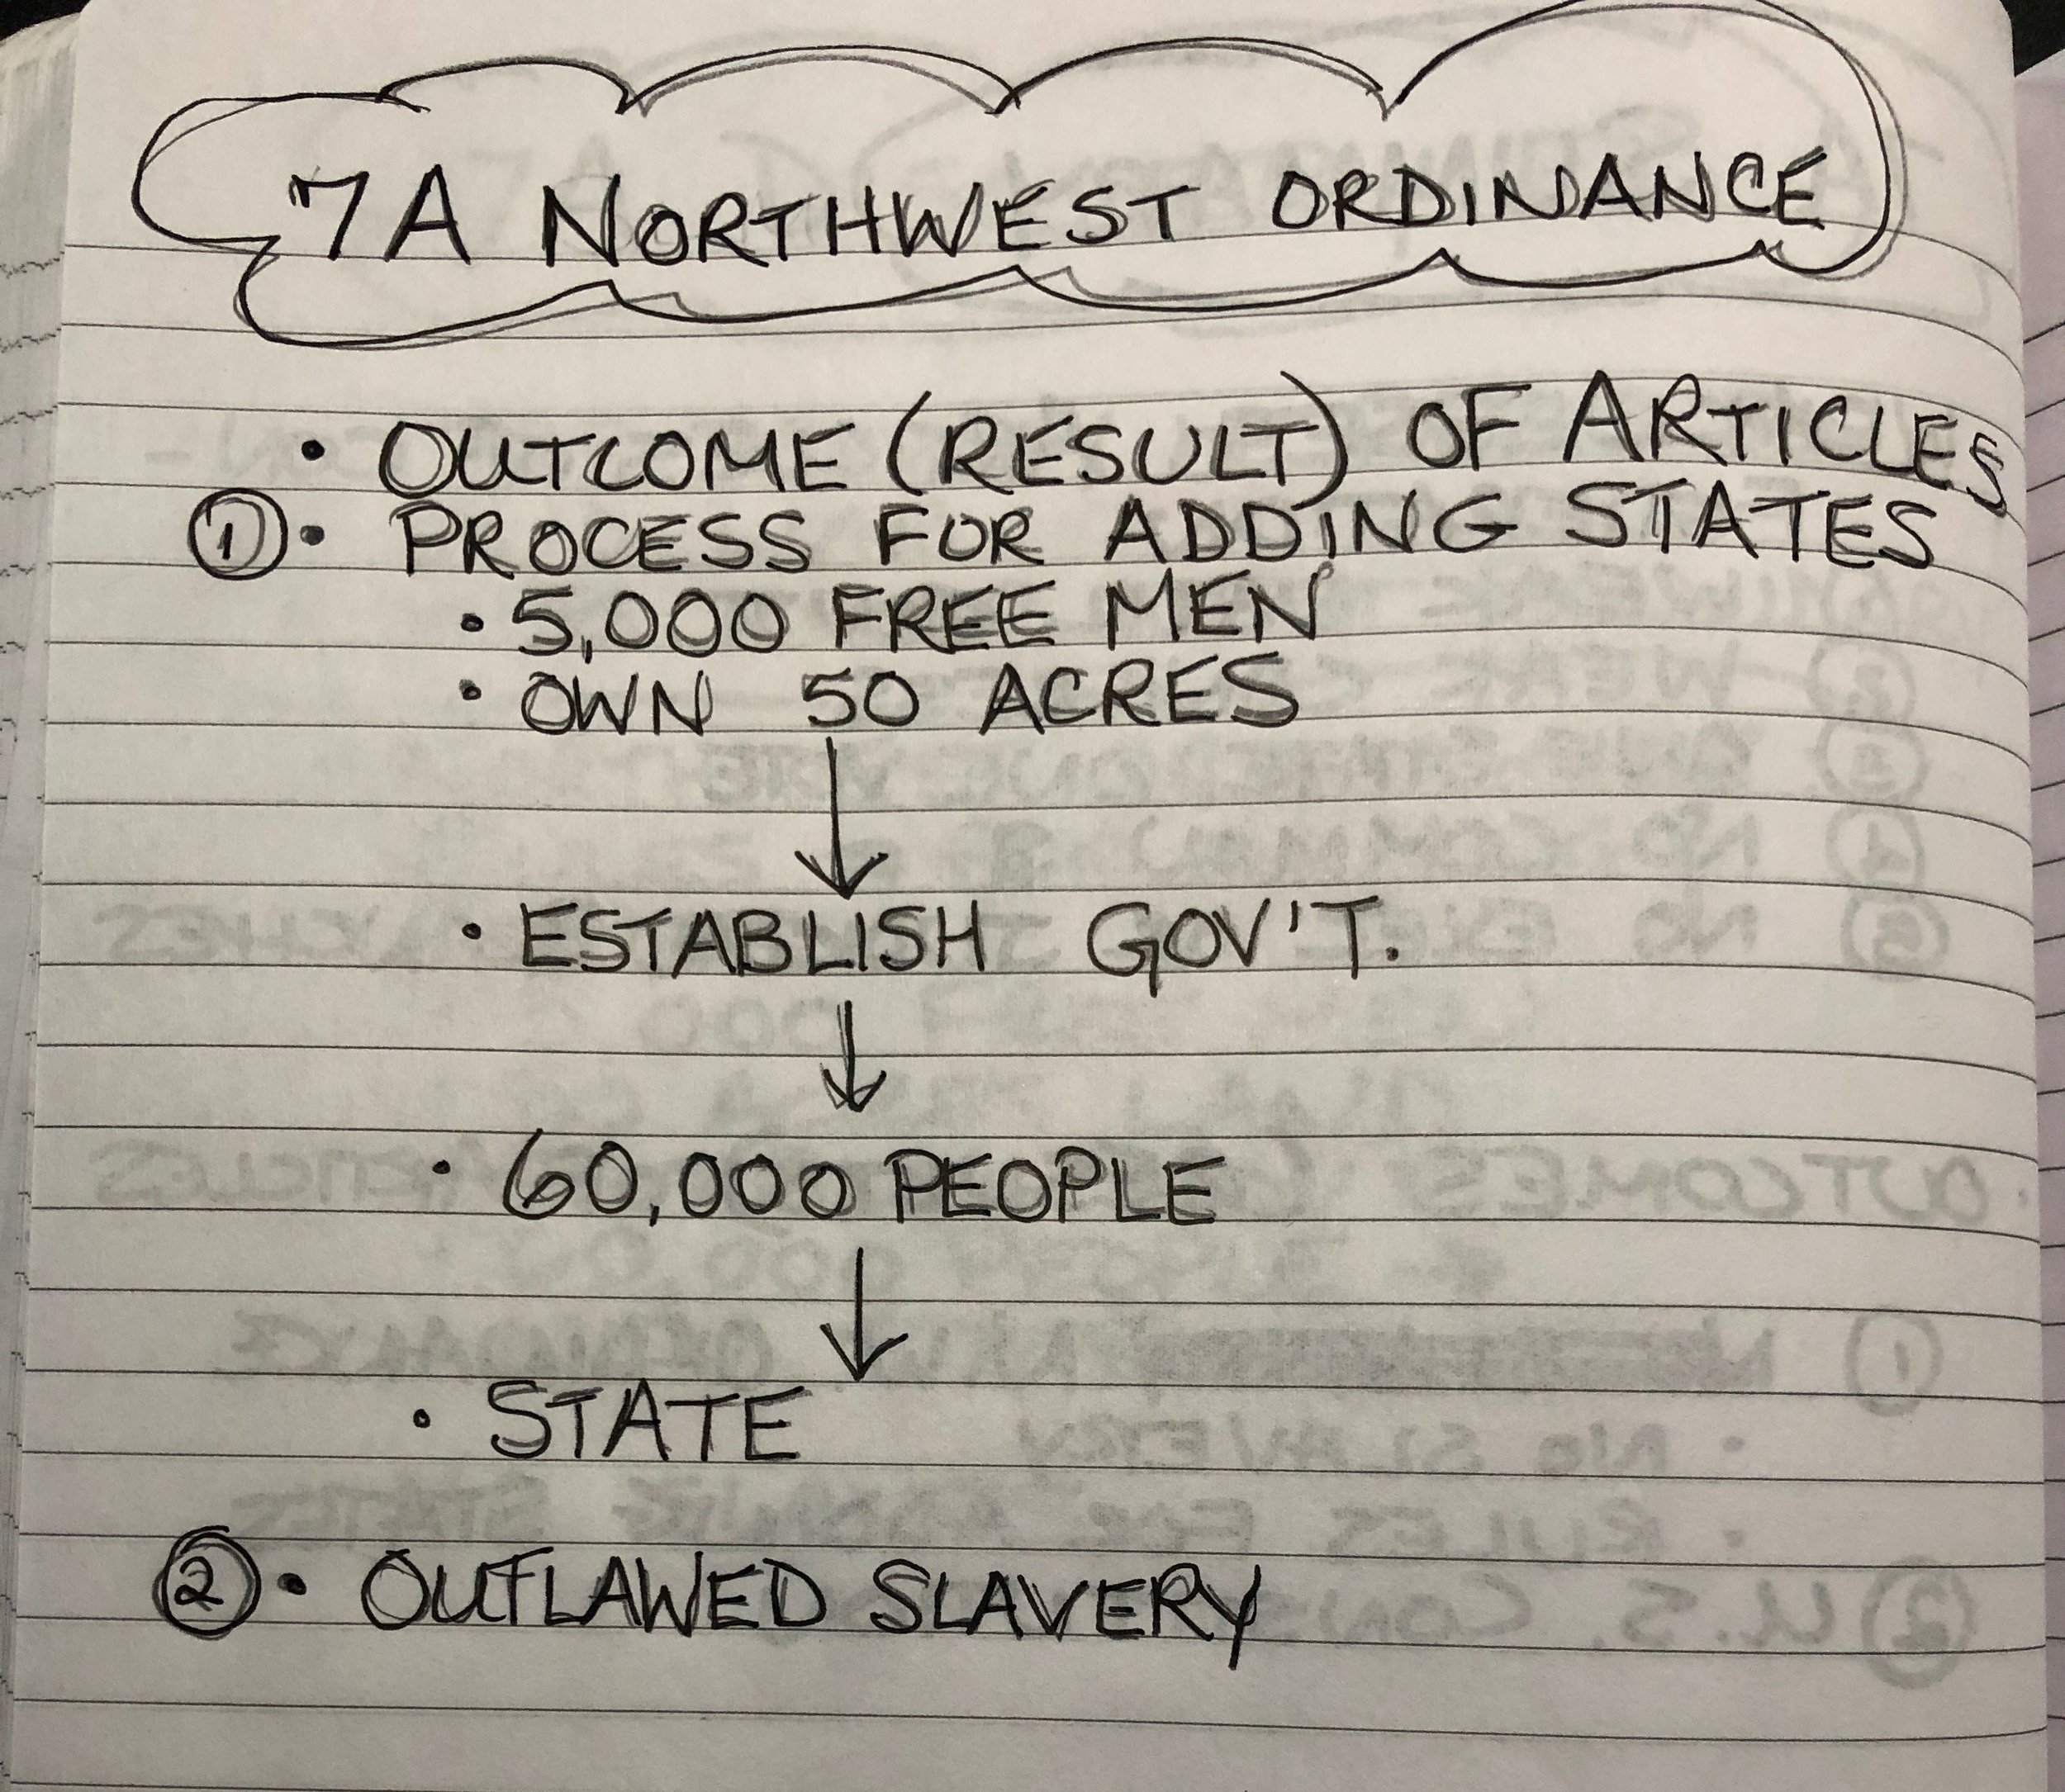 7A NORTHWEST ORDINANCE
• OUTCOME (RESULT) OF ARTICLES
① • PROCESS FOR ADDING STATES
• 5,000 FREE MEN
• OWN 50 ACRES
• ESTABLISH GOV'T.
• 60,000 PEOPLE
• STATE
② • OUTLAWED SLAVERY